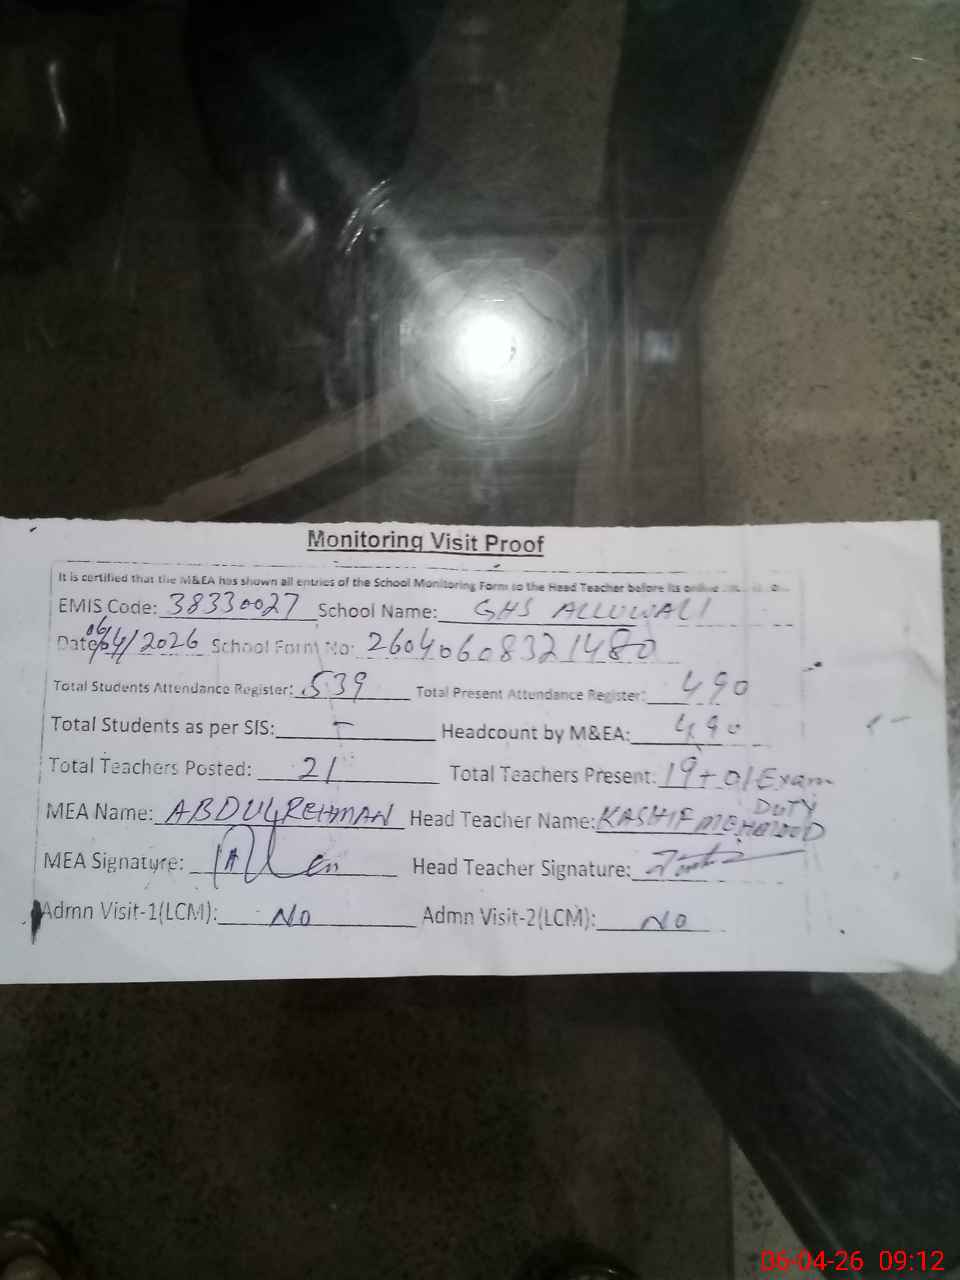 Monitoring Visit Proof
It is certified that the M&EA has shown all entries of the School Monitoring Form to the Head Teacher before its online
EMIS Code: 38330027 School Name: GHS ALLUWALI
Date: 06/04/2026 School Form No: 26040608321480
Total Students Attendance Register: 539 Total Present Attendance Register: 490
Total Students as per SIS: - Headcount by M&EA: 490
Total Teachers Posted: 21 Total Teachers Present: 19+01 Exam
DUTY
MEA Name: ABDULREHMAN Head Teacher Name: KASHIF MEHMOOD
MEA Signature: Head Teacher Signature:
Admn Visit-1(LCM): No Admn Visit-2(LCM): No
06-04-26 09:12